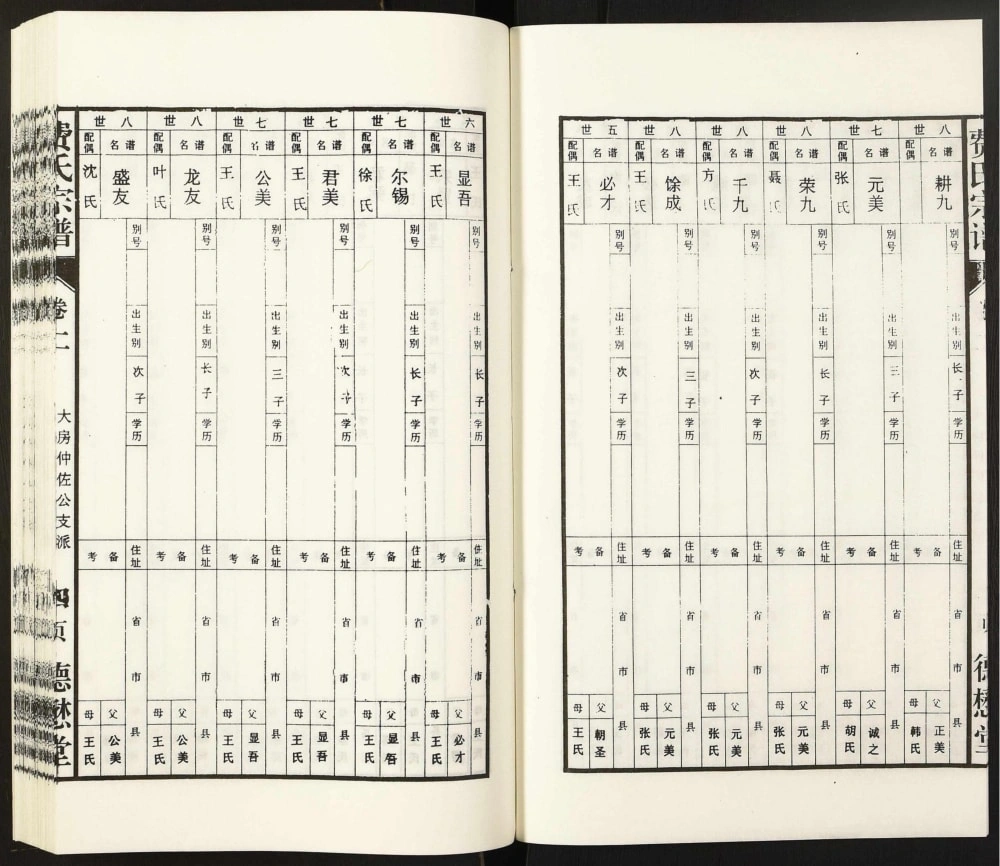 费氏宗谱
德懋堂
八
谱名 耕九
配偶
别号
出生别 长子
学历
住址 省 市 县
父 正美
母 韩氏
七世
谱名 元美
配偶 张氏
别号
出生别 三子
学历
住址 省 市 县
备考
父 诚之
母 胡氏
八世
谱名 荣九
配偶 聂氏
别号
出生别 长子
学历
住址 省 市 县
备考
父 元美
母 张氏
八世
谱名 千九
配偶 方氏
别号
出生别 次子
学历
住址 省 市 县
备考
父 元美
母 张氏
八世
谱名 馀成
配偶 王氏
别号
出生别 三子
学历
住址 省 市 县
备考
父 元美
母 张氏
五世
谱名 必才
配偶 王氏
别号
出生别 次子
学历
住址 省 市 县
备考
父 朝圣
母 王氏
六世
谱名 显吾
配偶 王氏
别号
出生别 长子
学历
住址 省 市 县
备考
父 必才
母 王氏
七世
谱名 尔锡
配偶 徐氏
别号
出生别 长子
学历
住址 省 市 县
备考
父 显吾
母 王氏
七世
谱名 君美
配偶 王氏
别号
出生别 次子
学历
住址 省 市 县
备考
父 显吾
母 王氏
七世
谱名 公美
配偶 王氏
别号
出生别 三子
学历
住址 省 市 县
备考
父 显吾
母 王氏
八世
谱名 龙友
配偶 叶氏
别号
出生别 长子
学历
住址 省 市 县
备考
父 公美
母 王氏
八世
谱名 盛友
配偶 沈氏
别号
出生别 次子
学历
住址 省 市 县
备考
父 公美
母 王氏
费氏宗谱
卷二
大房仲佐公支派
四页
德懋堂